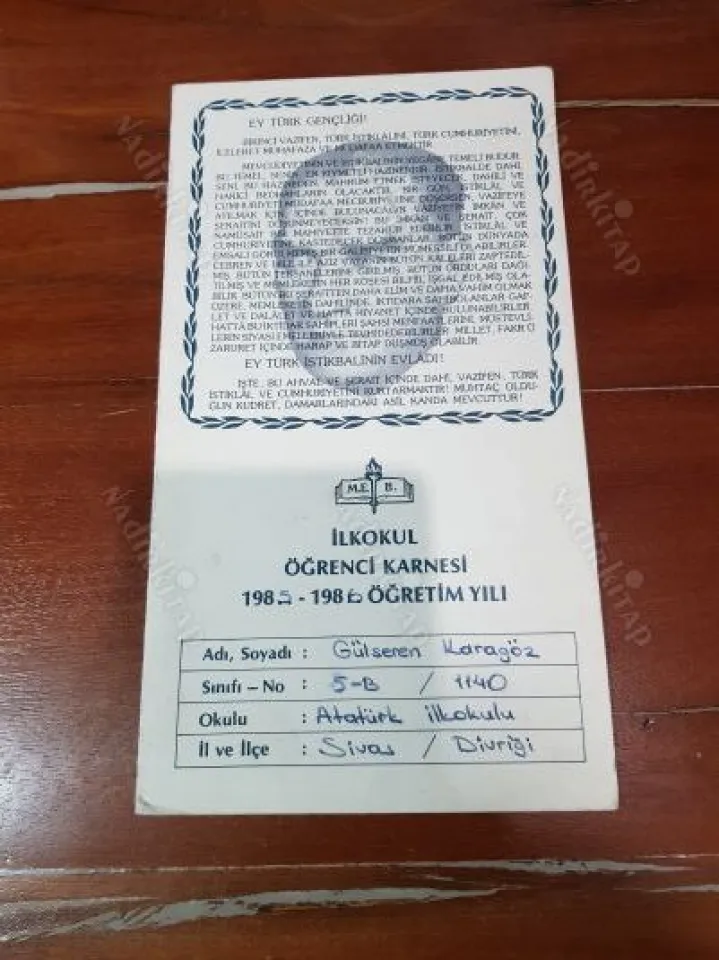 EY TÜRK GENÇLİĞİ!
BİRİNCİ VAZİFEN, TÜRK İSTİKLALİNİ, TÜRK CUMHURİYETİNİ,
İLELEBET MUHAFAZA VE MÜDAFAA ETMEKTİR.
MEVCUDİYETİNİN VE İSTİKBALİNİN YEGANE TEMELİ BUDUR.
BU TEMEL, SENİN, EN KIYMETLİ HAZİNENDİR. İSTİKBALDE DAHİ,
SENİ, BU HAZİNEDEN, MAHRUM ETMEK İSTEYECEK, DAHİLİ VE
HARİCİ BEDHAHLARIN OLACAKTIR. BİR GÜN, İSTİKLAL VE
CUMHURİYETİ MÜDAFAA MECBURİYETİNE DÜŞERSEN, VAZİFEYE
ATILMAK İÇİN, İÇİNDE BULUNACAĞIN VAZİYETİN İMKAN VE
ŞERAİTİNİ DÜŞÜNMEYECEKSİN! BU İMKAN VE ŞERAİT, ÇOK
NAMÜSAİT BİR MAHİYETTE TEZAHÜR EDEBİLİR. İSTİKLAL VE
CUMHURİYETİNE KASTEDECEK DÜŞMANLAR, BÜTÜN DÜNYADA
EMSALİ GÖRÜLMEMİŞ BİR GALİBİYETİN MÜMESSİLİ OLABİLİRLER.
CEBREN VE HİLE İLE AZİZ VATANIN, BÜTÜN KALELERİ ZAPTEDİL-
MİŞ, BÜTÜN TERSANELERİNE GİRİLMİŞ, BÜTÜN ORDULARI DAĞI-
TILMIŞ VE MEMLEKETİN HER KÖŞESİ BİLFİİL İŞGAL EDİLMİŞ OLA-
BİLİR. BÜTÜN BU ŞERAİTTEN DAHA ELİM VE DAHA VAHİM OLMAK
ÜZERE, MEMLEKETİN DAHİLİNDE, İKTİDARA SAHİP OLANLAR GAF-
LET VE DALALET VE HATTA HIYANET İÇİNDE BULUNABİLİRLER.
HATTA BU İKTİDAR SAHİPLERİ ŞAHSİ MENFAATLERİNİ, MÜSTEVLİ-
LERİN SİYASİ EMELLERİYLE TEVHİD EDEBİLİRLER. MİLLET, FAKR Ü
ZARURET İÇİNDE HARAP VE BİTAP DÜŞMÜŞ OLABİLİR.
EY TÜRK İSTİKBALİNİN EVLADI!
İŞTE, BU AHVAL VE ŞERAİT İÇİNDE DAHİ, VAZİFEN, TÜRK
İSTİKLAL VE CUMHURİYETİNİ KURTARMAKTIR! MUHTAÇ OLDU-
ĞUN KUDRET, DAMARLARINDAKİ ASİL KANDA MEVCUTTUR!
M.E. B.
İLKOKUL
ÖĞRENCİ KARNESİ
1985 - 1986 ÖĞRETİM YILI
Adı, Soyadı : Gülseren Karagöz
Sınıfı - No : 5-B / 1140
Okulu : Atatürk ilkokulu
İl ve İlçe : Sivas / Divriği
NADİRKİTAP
NADİRKİTAP
NADİRKİTAP
NADİRKİTAP